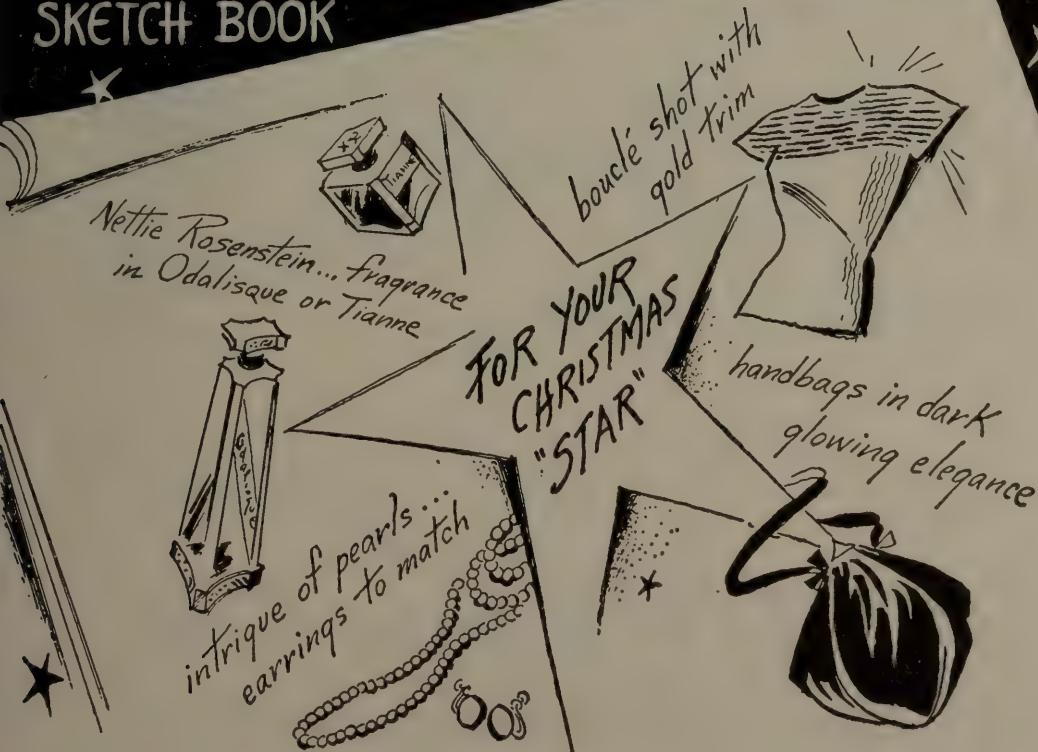 SKETCH BOOK
Nettie Rosenstein... fragrance
in Odalisque or Tianne
TIANNE
bouclé shot with
gold trim
FOR YOUR
CHRISTMAS
"STAR"
handbags in dark
glowing elegance
intrigue of pearls...
earrings to match